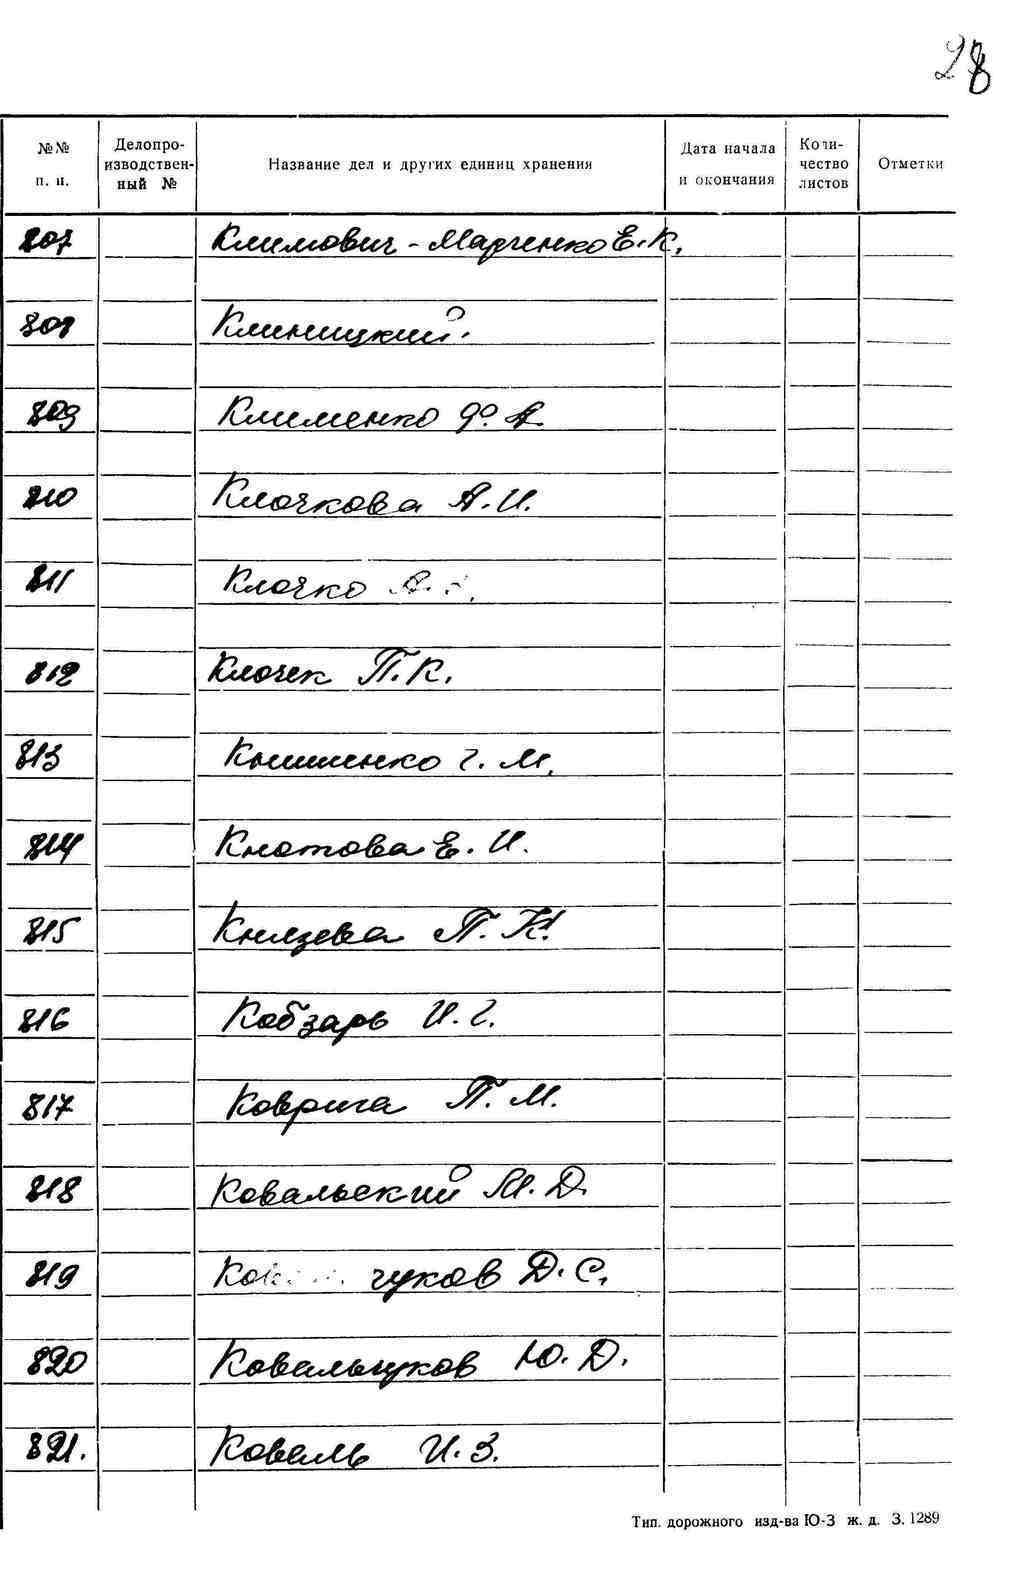 28
№№ п. п. Делопро-изводствен-ный № Название дел и других единиц хранения Дата начала и окончания Количество листов Отметки
807 Климович-Марченко Е.К.
808 Клиницкий.
809 Клименко Ф. А.
810 Клочкова А.И.
811 Клочко А.
812 Клочек П.К.
813 Книшенко Г. М.
814 Кнотова Е. И.
815 Князева П. К.
816 Кобзарь И. Г.
817 Коврига П. М.
818 Ковальский М. Д.
819 чуков Д. С.
820 Ковальчуков Ю. Д.
821. Коваль И. З.
Тип. дорожного изд-ва Ю-З ж. д. З. 1289